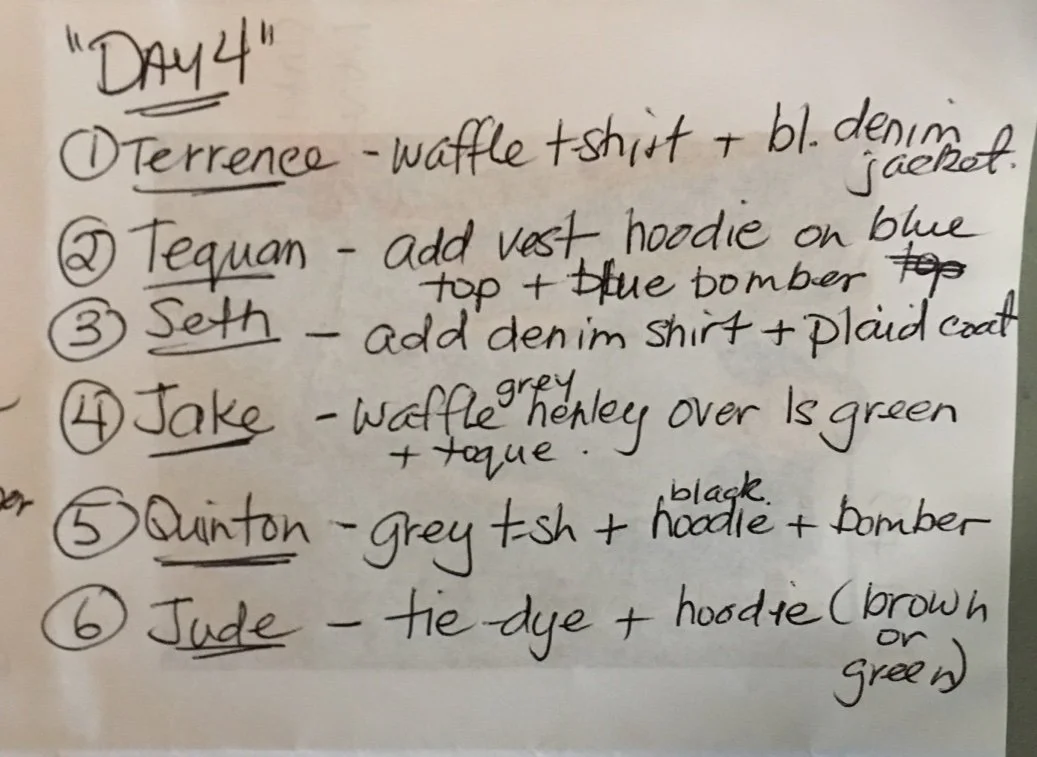 "DAY 4"
① Terrence - waffle t-shirt + bl. denim
jacket.
② Tequan - add vest hoodie on blue
top + blue bomber top
③ Seth - add denim shirt + plaid coat
④ Jake - waffle grey henley over ls green
+ toque.
⑤ Quinton - grey t-sh + black hoodie + bomber
⑥ Jude - tie-dye + hoodie (brown
or
green)